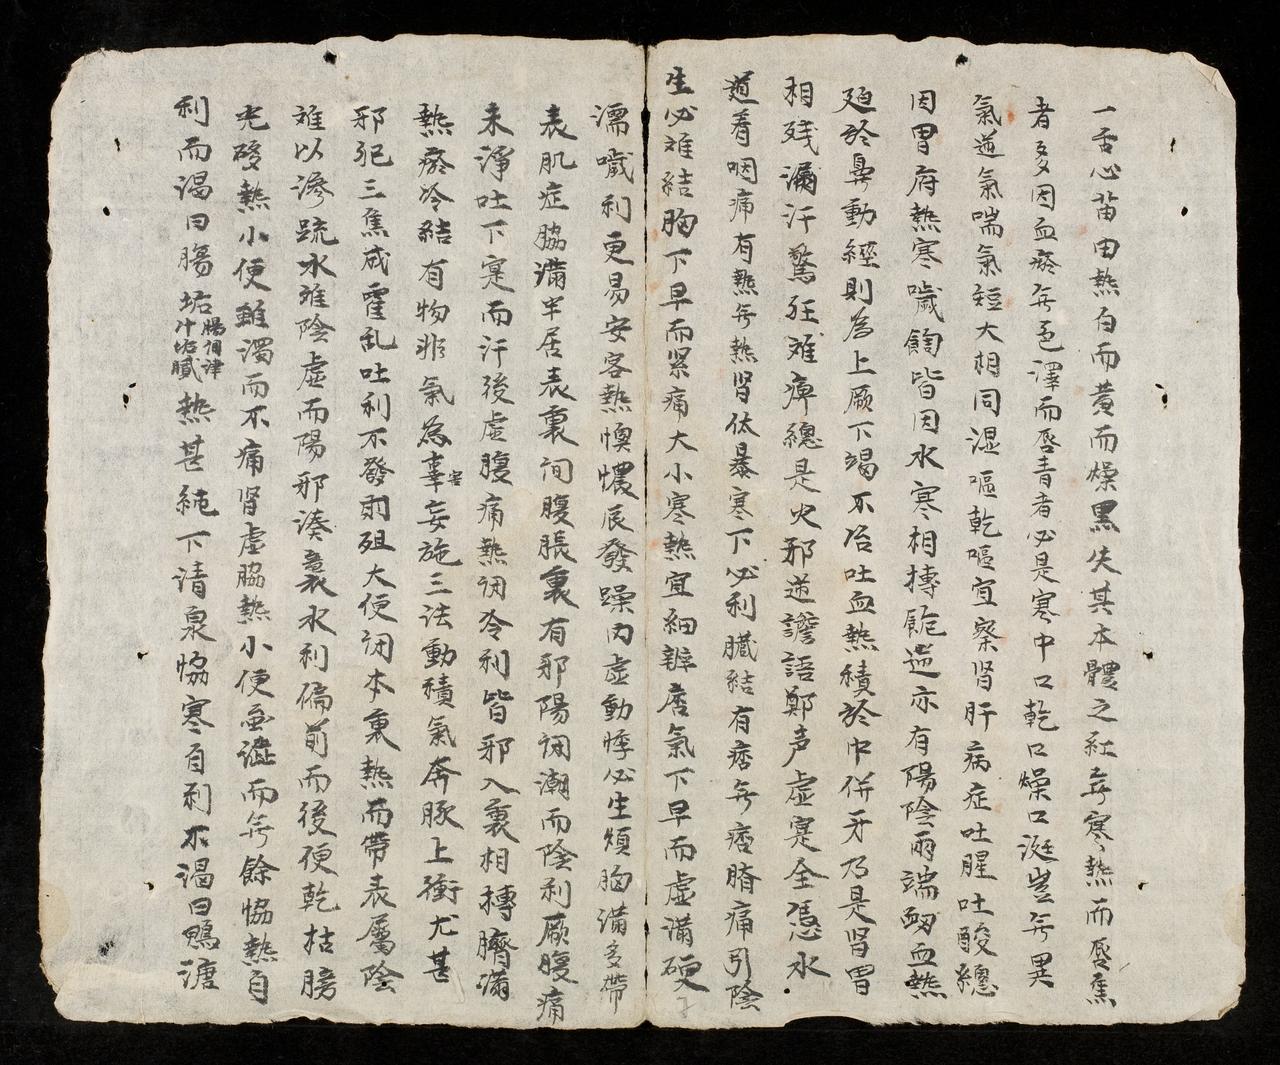 一舌心苗由熱白而黃而燥黑失其本體之紅無寒熱而唇焦
者多因血瘀無色澤而唇青者必是寒中口乾口燥口涎豈無異
氣逆氣喘氣短大相同湿嘔乾嘔宜察肾肝病症吐腥吐酸總
因胃府熱寒噦餲皆因水寒相搏飽逆亦有陽陰兩端衂血熱
廹於鼻動經則為上厥下竭不治吐血熱積於中併牙乃是肾胃
相残漏汗驚狂难痺總是火邪逆譫語鄭声虛寔全憑水
道看咽痛有熱無熱肾伏暴寒下必利臟結有痞無痞臍痛引陰
生必难結胸下早而紧痛大小寒熱宜細辨痞氣下早而虛滿硬
濡噦利更易安客熱懊憹辰發躁内虛動悸必生煩胸滿多帶
表肌症脇滿半居表裏间腹脹裏有邪陽调潮而陰利厥腹痛
未淨吐下寔而汗後虛腹痛熱调冷利皆邪入裏相搏臍滿
熱瘀冷結有物非氣為辜害妄施三法動積氣奔豚上衝尤甚
邪犯三焦成霍乱吐利不發則殂大便调本東熱而帶表屬陰
难以滲疏水难陰虛而陽邪湊裏水利偏前而後便乾枯膀
光移熱小便雖濁而不痛肾虛脇熱小便並澁而無餘恊熱自
利而渴曰腸垢腸間津汁垢膩熱甚純下清泉恊寒自利不渴曰鴨溏